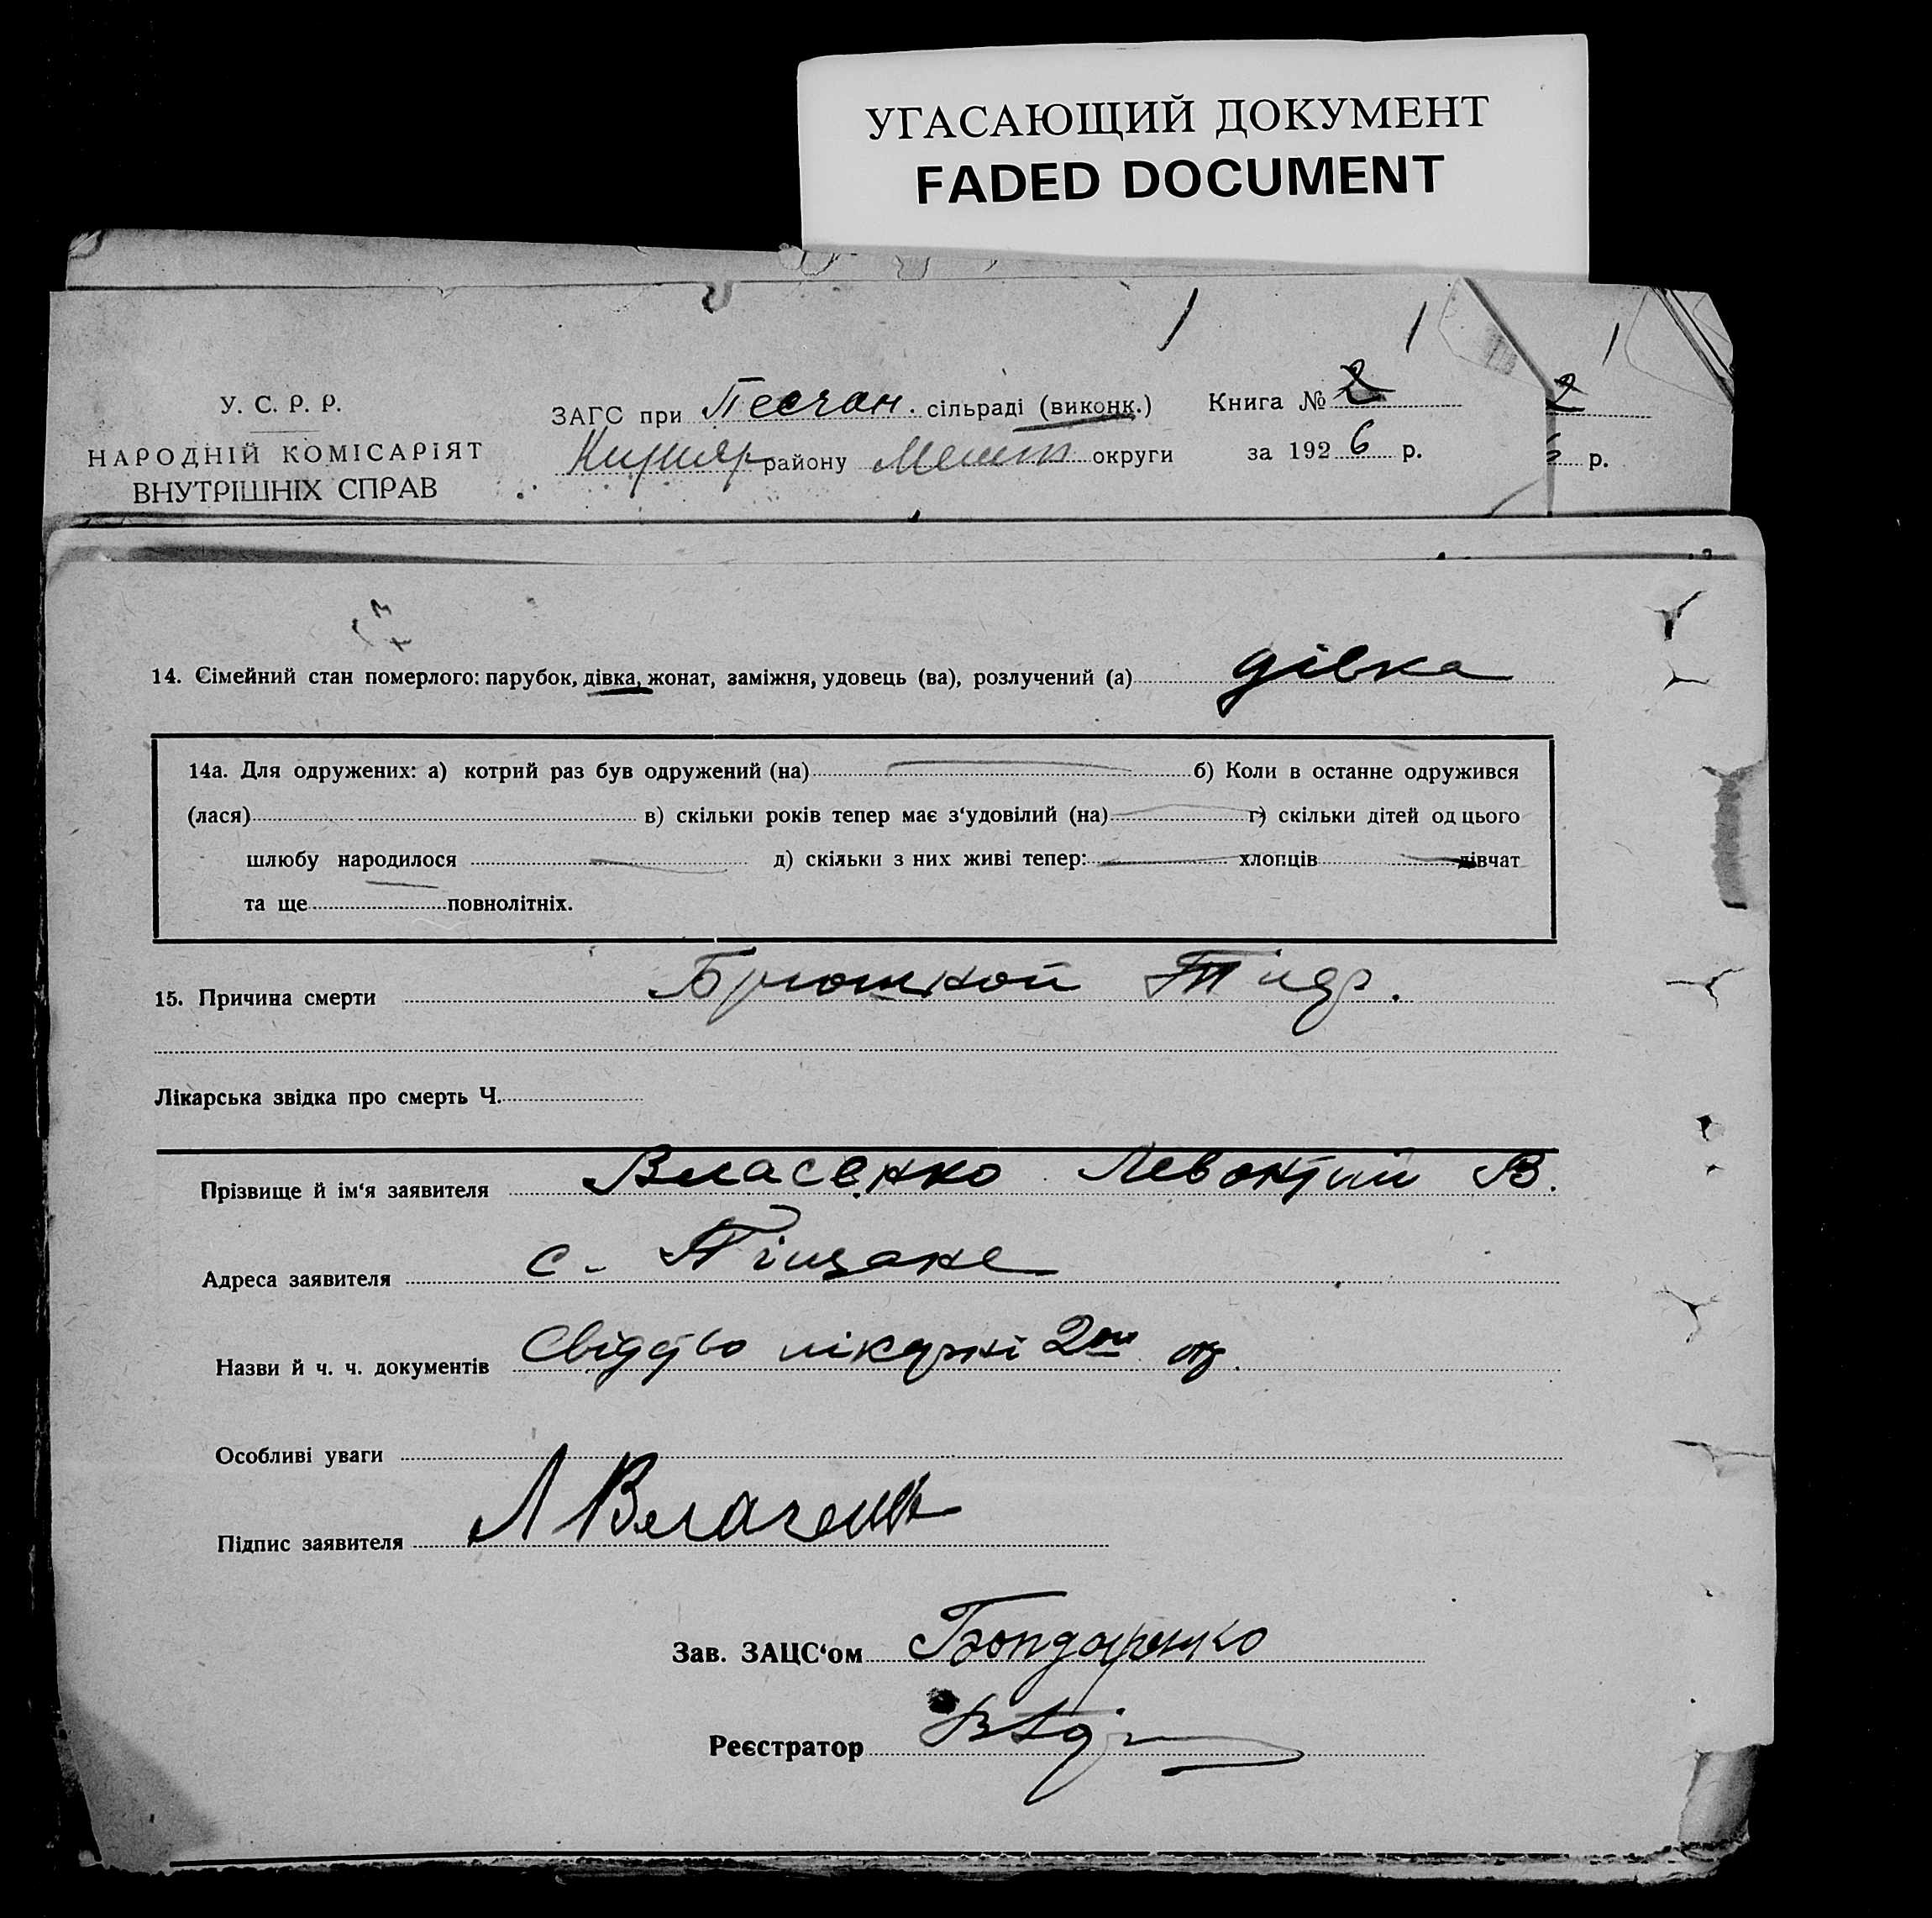 УГАСАЮЩИЙ ДОКУМЕНТ
FADED DOCUMENT
У. С. Р. Р.
НАРОДНІЙ КОМІСАРІЯТ
ВНУТРІШНІХ СПРАВ
ЗАГС при Песчан. сільраді (виконк.)
району округи
Книга № 2
за 1926 р.
2
6 р.
14. Сімейний стан померлого: парубок, дівка, жонат, заміжня, удовець (ва), розлучений (а) дівка
14а. Для одружених: а) котрий раз був одружений (на) б) Коли в останне одружився
(лася) в) скільки років тепер має з‘удовілий (на) г) скільки дітей од цього
шлюбу народилося д) скільки з них живі тепер: хлопців дівчат
та ще повнолітніх.
15. Причина смерти Брюшной Тиф.
Лікарська звідка про смерть Ч.
Прізвище й ім‘я заявителя Власенко Левонтий В.
Адреса заявителя с. Піщане
Назви й ч. ч. документів лікарні 2
Особливі уваги
Підпис заявителя Л Власенко
Зав. ЗАЦС‘ом Бондаренко
Реєстратор